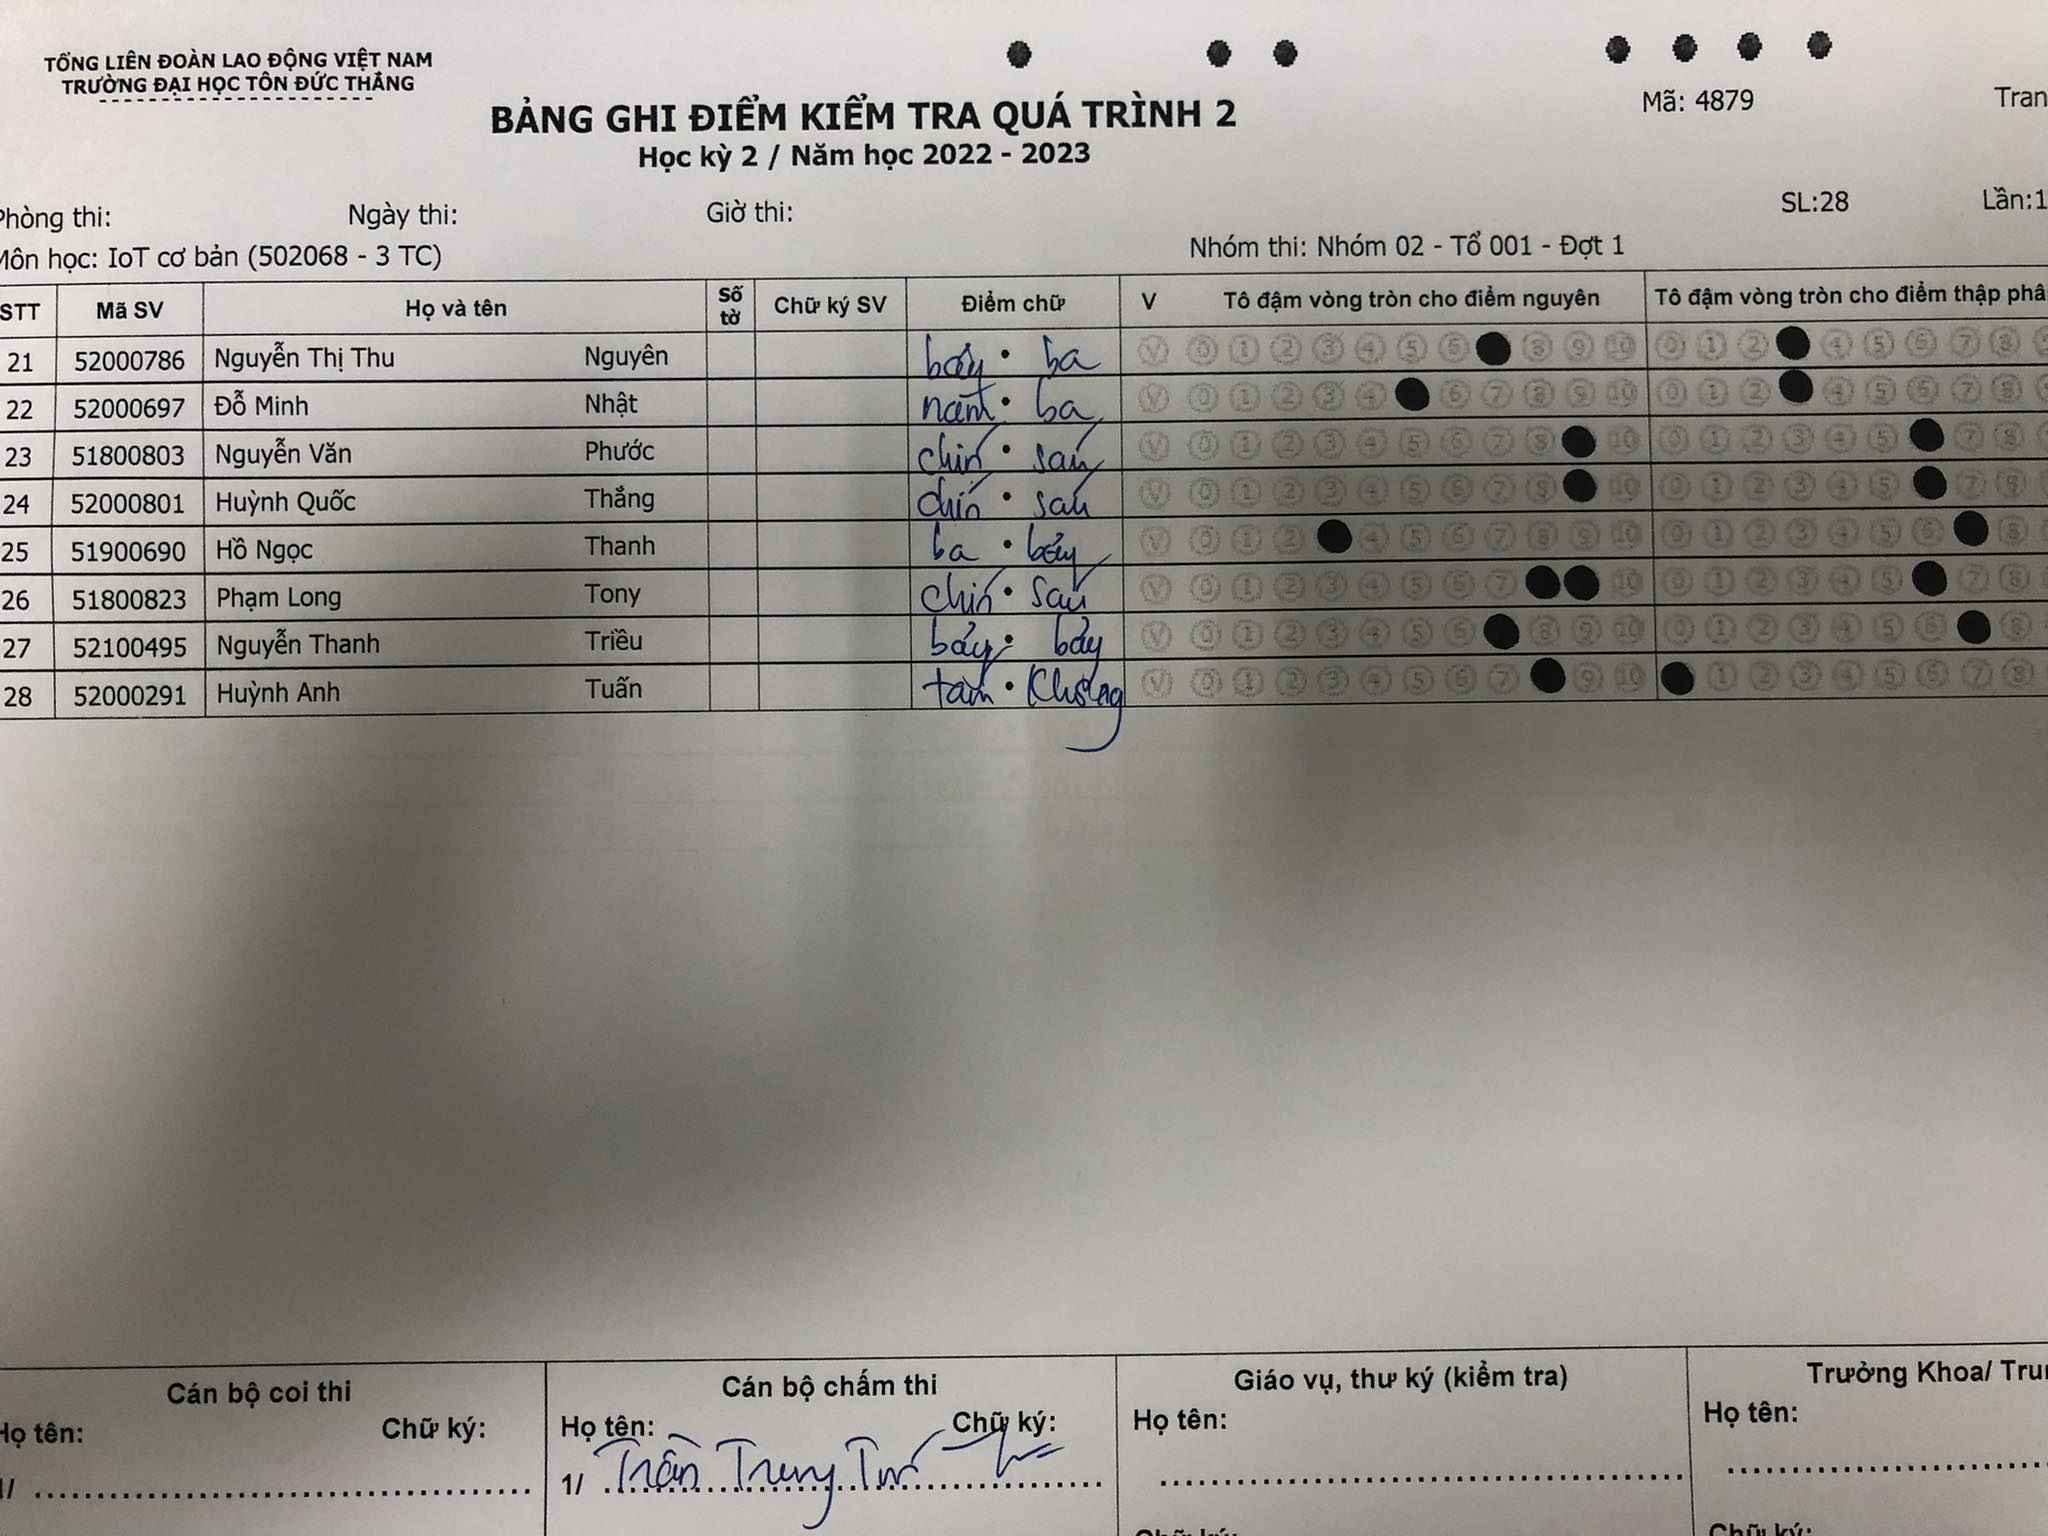 TỔNG LIÊN ĐOÀN LAO ĐỘNG VIỆT NAM
TRƯỜNG ĐẠI HỌC TÔN ĐỨC THẮNG
BẢNG GHI ĐIỂM KIỂM TRA QUÁ TRÌNH 2
Học kỳ 2 / Năm học 2022 - 2023
Mã: 4879 Tran
Phòng thi: Ngày thi: Giờ thi: SL:28 Lần:1
Môn học: IoT cơ bản (502068 - 3 TC) Nhóm thi: Nhóm 02 - Tổ 001 - Đợt 1
STT Mã SV Họ và tên Số tờ Chữ ký SV Điểm chữ V Tô đậm vòng tròn cho điểm nguyên Tô đậm vòng tròn cho điểm thập phâ
21 52000786 Nguyễn Thị Thu Nguyên bảy . ba V 0 1 2 3 4 5 6 8 9 10 0 1 2 4 5 6 7 8
22 52000697 Đỗ Minh Nhật năm . ba V 0 1 2 3 4 6 7 8 9 10 0 1 2 4 5 6 7 8
23 51800803 Nguyễn Văn Phước chín . sáu V 0 1 2 3 4 5 6 7 8 10 0 1 2 3 4 5 7 8
24 52000801 Huỳnh Quốc Thắng chín . sáu V 0 1 2 3 4 5 6 7 8 10 0 1 2 3 4 5 7 8
25 51900690 Hồ Ngọc Thanh ba . bảy V 0 1 2 4 5 6 7 8 9 10 0 1 2 3 4 5 6 8
26 51800823 Phạm Long Tony chín . sáu V 0 1 2 3 4 5 6 7 10 0 1 2 3 4 5 7 8
27 52100495 Nguyễn Thanh Triều bảy . bảy V 0 1 2 3 4 5 6 8 9 10 0 1 2 3 4 5 6 8
28 52000291 Huỳnh Anh Tuấn tám . Không V 0 1 2 3 4 5 6 7 9 10 1 2 3 4 5 6 7 8
Cán bộ coi thi Cán bộ chấm thi Giáo vụ, thư ký (kiểm tra) Trưởng Khoa/ Trun
Họ tên: Chữ ký: Họ tên: Chữ ký: Họ tên: Họ tên:
1/ 1/ Trần Trung Tín
Chữ ký: Chữ ký: